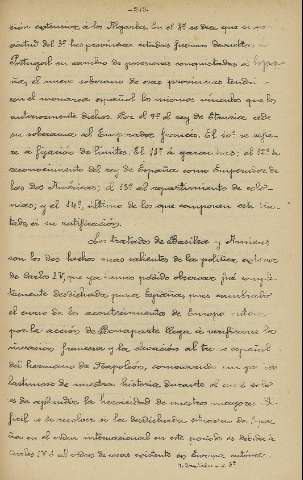 -213-
sión extensiva á los Algarbes. En el 8º se dice que si
citud del 3º las provincias citadas fuesen devueltas
Portugal en cambio de posesiones conquistadas á Espa-
ña, el nuevo soberano de esas provincias tendrá
con el monarca español los mismos vínculos que los
anteriormente dichos. Por el 9º el rey de Etruria cede
su soberanía al Emperador francés. El 10º se refie-
re á fijación de límites. El 11º á garantías; el 12º al
reconocimiento del rey de España como Emperador de
las dos Américas; el 13º al repartimiento de colo-
nias; y el 14º, último de los que componen este tra-
tado, á su ratificación.
Los tratados de Basilea y Amiens
son los dos hechos más salientes de la política exterior
de Carlos IV, que ya hemos podido observar fué comple-
tamente desdichada para España, pues
el curso de los acontecimientos de Europa
por la acción de Bonaparte llega á verificarse la
invasión francesa y la elevación al trono español
del hermano de Napoleón, comenzando un
lastimoso de nuestra historia, durante el cual sólo
es de aplaudir la heroicidad de nuestros mayores.
fícil es se resolver si la desdichada situación de Espa-
ña en el orden internacional en este período es debida á
Carlos IV ó al orden de cosas existente en Europa